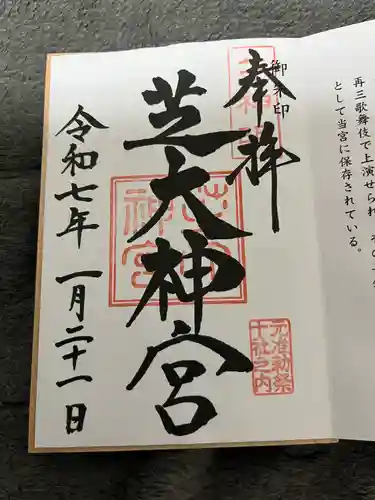 再三歌舞伎で上演せられ、その
として当宮に保存されている。
御朱印
奉拝
芝大神宮
元准勅祭
十社之内
令和七年一月二十一日